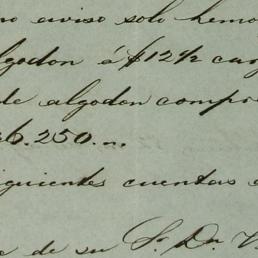 no aviso solo hemo
lgodon á $12½ car
de algodon compr
$6.250...
iguientes cuentas
e de su Sr. Dn. V